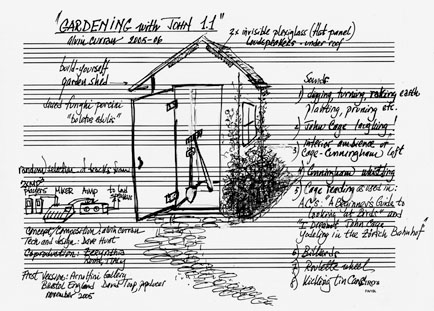 "GARDENING with JOHN 1.1"
Alvin Curran 2005-06
2x invisible plexiglass (flat panel)
loudspeakers - under roof
build-yourself
garden shed
dried funghi porcini
"boletus edulis"
random selection of tracks from
Players MIXER Amp to loud speakers
Concept/Composition: alvin curran
Tech and design:
Coproduction:
First Version: Arnolfini Gallery
Bristol England
november 2005
Sounds
1) digging, turning, raking earth
planting, pruning etc.
2) John Cage laughing!
3) Interior ambience of
Cage-Cunningham loft
4) Cunningham whistling
5) Cage reading as used in:
A.C's: "A Beginner's Guide to
Looking at Birds" and
"I Dreamt John Cage
Yodeling in the Zürich Bahnhof"
6) Billiards
7) Roulette wheel
8) Kicking tin Cans